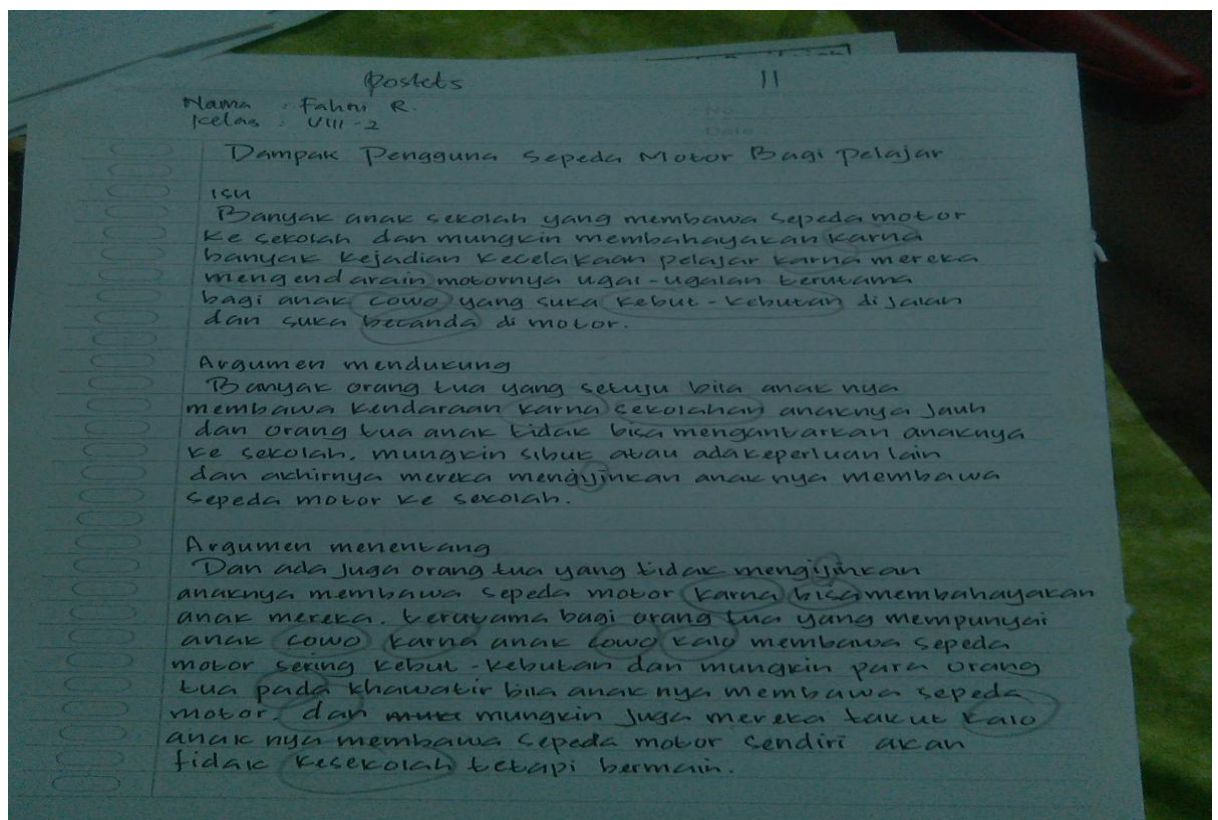 Postets 11
Nama : Fahmi R.
Kelas : VIII-2
No :
Date :
Dampak Pengguna Sepeda Motor Bagi Pelajar
isu
Banyak anak sekolah yang membawa sepeda motor
ke sekolah dan mungkin membahayakan karna
banyak kejadian kecelakaan pelajar karna mereka
mengendarain motornya ugal-ugalan terutama
bagi anak cowo yang suka kebut-kebutan di jalan
dan suka becanda di motor.
Argumen mendukung
Banyak orang tua yang setuju bila anak nya
membawa kendaraan karna sekolahan anaknya jauh
dan orang tua anak tidak bisa mengantarkan anaknya
ke sekolah, mungkin sibuk atau ada keperluan lain
dan akhirnya mereka mengijinkan anak nya membawa
sepeda motor ke sekolah.
Argumen menentang
Dan ada juga orang tua yang tidak mengijinkan
anaknya membawa sepeda motor karna bisa membahayakan
anak mereka. terutama bagi orang tua yang mempunyai
anak cowo karna anak cowo kalo membawa sepeda
motor sering kebut-kebutan dan mungkin para orang
tua pada khawatir bila anak nya membawa sepeda
motor. dan mungkin juga mereka takut kalo
anak nya membawa sepeda motor sendiri akan
tidak kesekolah tetapi bermain.